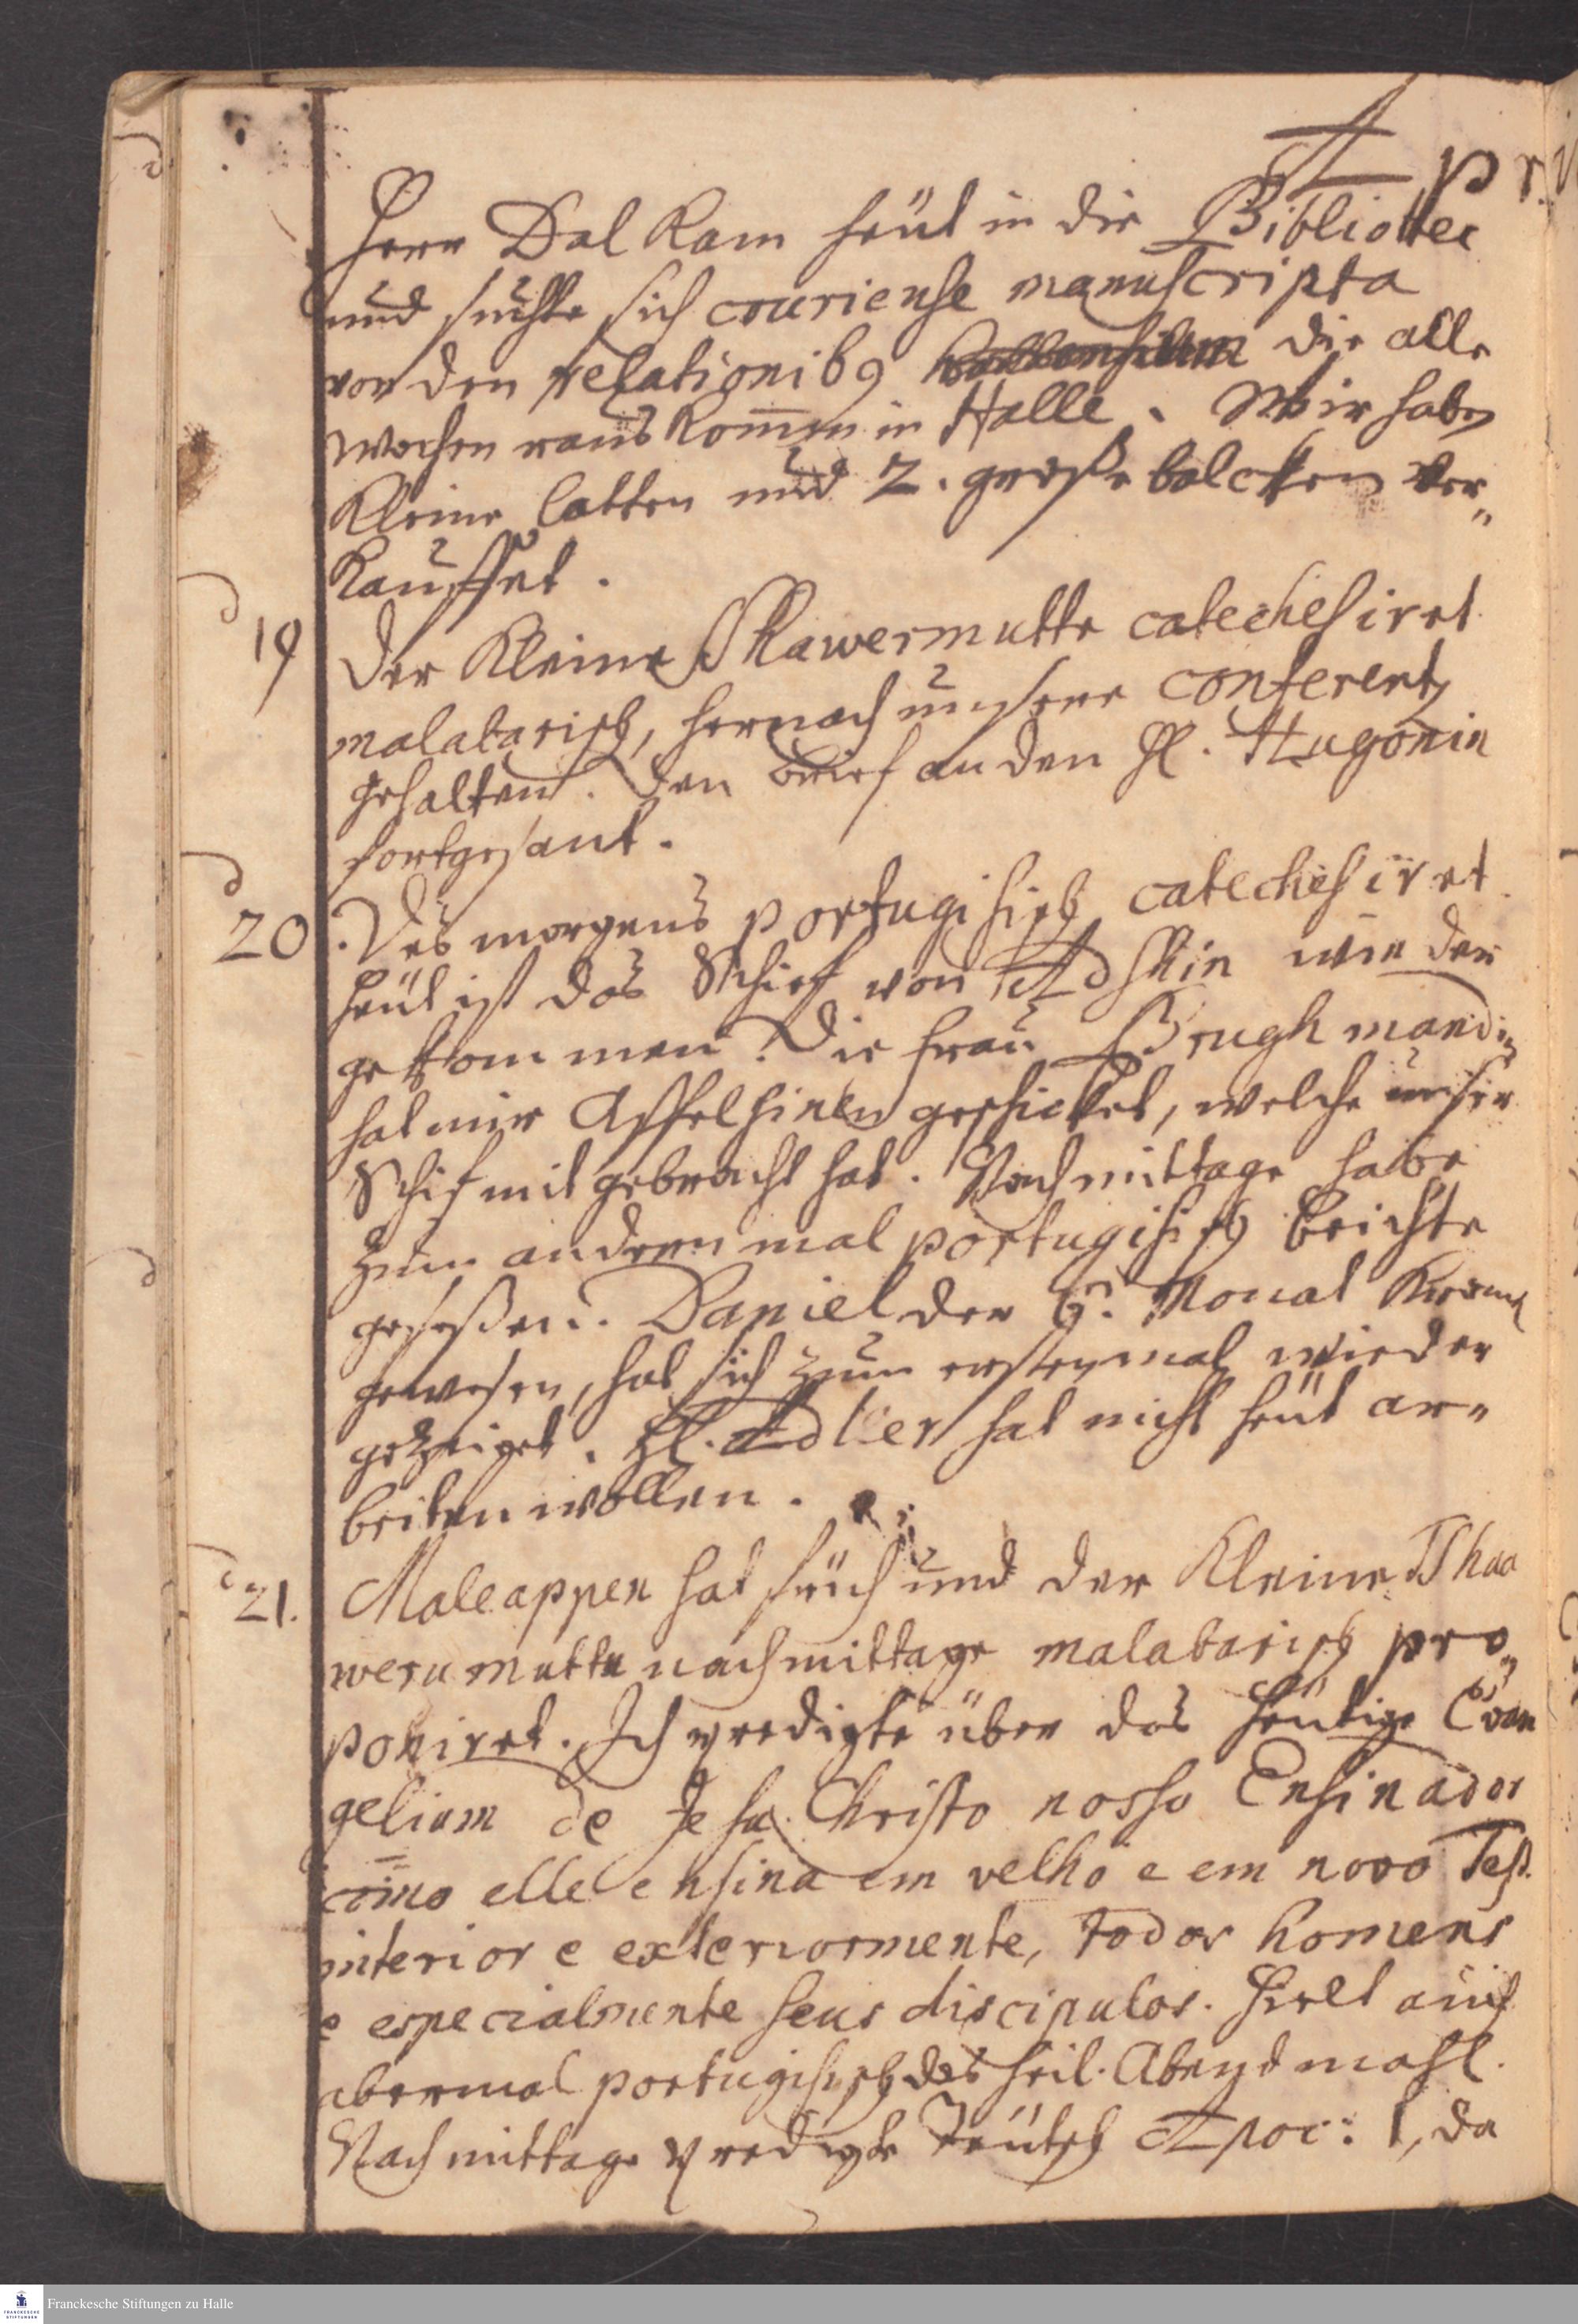 Apr.
Herr Dal kam heüt in die Bibliothec
und suchte sich couriense manuscripta
von den relationibg die alle
wochen raus kom̅en in Halle. Wir haben
kleine latten und 2. große balcken ver„
kauffet.
19 der kleine Schawermutte catechesiret
malabarisch, hernach unsere conferentz
gehalten. Den brief an den H. Hugonin
fortgesant.
20. Des morgens portugisisch catechesiret.
heüt ist das Schief von Adshin wieder
gekommen. Die frau Brughmandin
hat mir Apfelsinen geschicket, welche unser
Schif mit gebracht hat. Nachmittage habe
zum andern mal portugisisch beichte
geseßen. Daniel der 6. Monat kranck
gewesen, hat sich zum erstenmal wieder
gezeiget. H. Adler hat nicht heüt ar„
beiten wollen.
21. Maleappen hat früh und der kleine Thaa
werumuttu nachmittage malabarisch pro„
poniret. Ich predigte über das heütige Evan
gelium de Jesu Christo nosso Ensinador
com̅o elle ensina em velho e em novo Test.
interior e exteriormente, todos homens
e especialmente seus discipulos. Hielt auch
abermal portugisisch das heil. Abendmahl.
Nachmittage predigte Teütsch Apoc: 1, da
Franckesche Stiftungen zu Halle